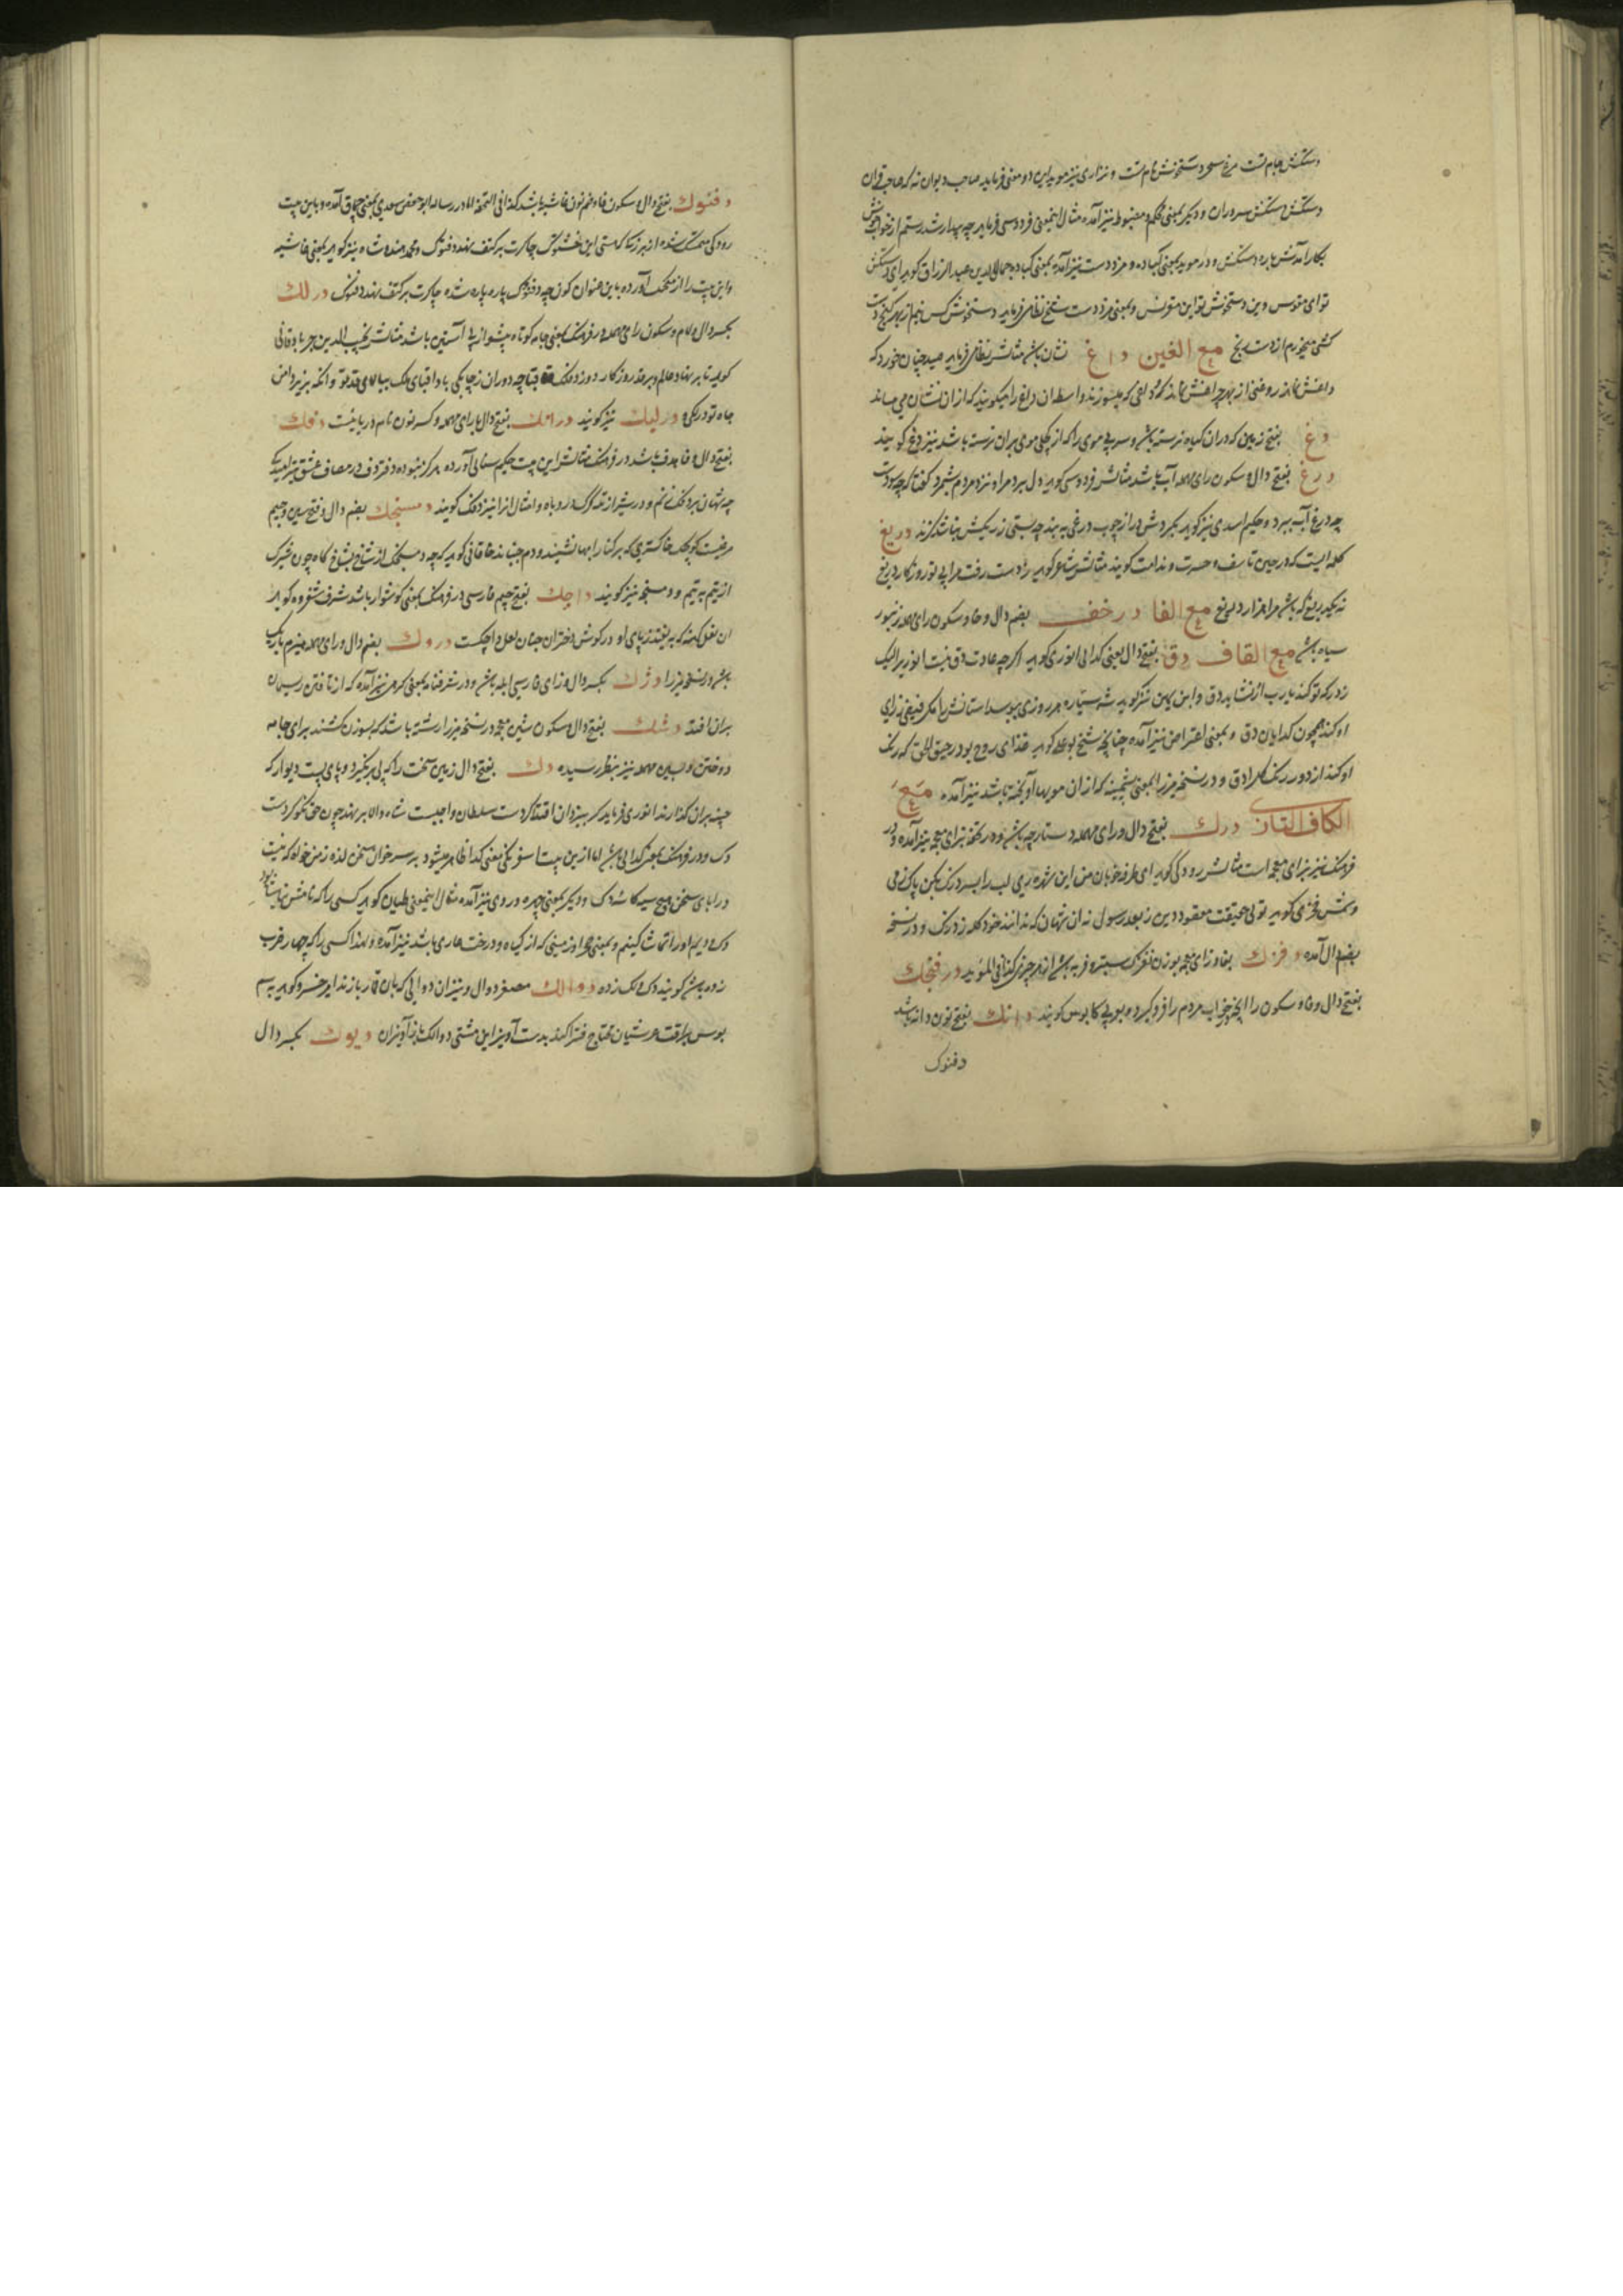 دستکش جام تست مرغ سحر دستخوش نام تست و نزاری نیز موید این دو معنی فرماید صاحب دیوان نه که صاحب قران
دستکش دستکش سروران و دیگر بمعنی محکم و مضبوط نیز آمده مثال اینمعنی فردوسی فرماید چه بیدار شد رستم از خواب خوش
بکار آمدش باره دستکش و در موید بمعنی کباده و مزد دست نیز آمده بمعنی کباده جمال الدین عبد الرزاق گوید ای دستکش
تو ای مقوس وین دستخوش تو این مقرنس و بمعنی مزد دست شیخ نظامی فرماید دستخوش کس نیم از بهر گنج دست
کشی میخورم از دست رنج مع الغین داغ نشان باشد مثالش نظامی فرماید صید چنان خورد که
داغش نماند روغنی از بهر چراغش نماند و داغی که میسوزند و اسطه ان داغ را میگویند که از ان نشان می ماند
دغ بفتح زمین که در ان گیاه نرسته باشد و سر بی موی را که از کچلی موی بر ان نرسته باشد نیز دغ گویند
درغ بفتح دال و سکون رای مهمله آب باشد مثالش فردوسی گوید دل برد مرا و نزد مردم بشمرد گفتا که چه سودست
چه درغ آب ببرد و حکیم اسدی نیز گوید بکردش در از چوب درغی به بند چه بستی ز ریکش بناشد گزند دریغ
کلمه ایست که در حین تاسف و حسرت و ندامت گویند مثالش شاعر گوید ز دست رفت مرا بی تو روزگار دریغ
نه یک دریغ که باشد مرا هزار دریغ مع الفا درخف بضم دال و خا و سکون رای مهمله زنبور
سیاه باشد مع القاف دق بفتح دال بمعنی گدایی انوری گوید اگر چه عادت دق نیست انوری را لیک
ز در که تو کند یا رب از نشاید دق و ابن یمین نیز گوید شه ستاره هر روزی ببوسد استانش را مگر فیضی ز رای
او کند همچون گدایان دق و بمعنی اعتراض نیز آمده چنانچه شیخ بوعلی گوید غذای روح بود رحیق الحق که رنگ
او کند از دور رنگ گل را دق و در نسخه میرزا بمعنی پشمینه که از ان مویها آویخته باشد نیز آمده مع
الکاف التازی درک بفتح دال و رای مهمله دستارچه باشد و در تحفه بزای معجمه نیز آمده و در
فرهنگ نیز بزای معجمه است مثالش رودکی گوید ای طرفه خوبان من ای شهره ری لب را بسر درک بکن پاک ز می
و شمس فخری گوید تولی حقیقت معقود دین ز بعد رسول نه ان شهان که ندانند خود کله ز درک و در نسخه
بضم دال آمده دفزک بفا و زای معجمه بوزن نغزک سبتر و فربه باشد از هر چیزی کذا فی الموید درفنجک
بفتح دال و فا و سکون را آنچه در خواب مردم را فرو گیرد و بعربی کابوس گویند دانک بفتح نون دانه باشد
دفنوک
دفنوک بفتح دال و سکون فا و ضم نون غاشیه باشد کذا فی التحفه اما در رساله ابو حفص سغدی بمعنی چماق آمده و باین بیت
رودکی متمسک شده از بزرکی که هستی این خشنوک چاکرت بر کتف نهد دفنوک و محمد هندوشاه نیز گوید بمعنی غاشیه
و این بیت را از منجیک آورده باین عنوان کون چه دفنوک پاره پاره شده چاکرت بر کتف نهد دفنوک درلک
بکسر دال و لام و سکون رای مهمله در فرهنگ بمعنی جامه کوتاه پیشواز با آستین باشد مثالش نجیب الدین جربادقانی
گوید تا بر نهاد عالم و بر قد روزگار دوزد فلک قباچه دوران ز چابکی بادا قبای ملک ببالای قد تو وانکه بزیر دامن
جاه تو درلکی و درلیک نیز گویند درانک بفتح دال با رای مهمله و کسر نون نام دریائیست دفک
بفتح دال و فا هدف باشد در فرهنگ مثالش این بیت حکیم سنائی آورده هر کز نبوده دفتر دف در مصاف عشق تیر امید یک
چه شهان بر دفک زنم و در شیراز تله گرگ و روباه و امثال انرا نیز دفک گویند دمسنجک بضم دال و فتح سین و جیم
مرغیست کوچک خاکستری که بر کنار ابها نشیند و دم جنباند خاقانی گوید که چه دمسنجک از شاخ بشاخ گاه چون شبرک
از یتیم به یتیم و دمسنجه نیز گویند داچک بفتح جیم فارسی در فرهنگ بمعنی گوشوار باشد شرف شفروه گوید
ان نعل کهنه که بیفتد ز پای او در گوش دختران جنان لعل داچکست دروک بضم دال و رای مهمله هیزم باریک
باشد در نسخه میرزا دژک بکسر دال و زای فارسی ابله باشد و در شرفنامه بمعنی گرهی نیز آمده که از تافتن ریسمان
بران افتد دشک بفتح دال و سکون شین معجمه در نسخه میرزا رشته باشد که بسوزن کشند برای جامه
دوختن و بسین مهمله نیز بنظر رسیده دک بفتح دال زمین سخت را که پی بر نگیرد و پای پست دیوار که
چینه بران گذارند انوری فرماید کر بیزدان اقتدا کردست سلطان واجبست شاه والا بر نهد چون حق نکو کردست
دک و در فرهنگ بمعنی گدایی باشد اما ازین بیت سفرنگی بمعنی گدا ظاهر میشود بر سر خوان سخن لذه ز من خواه که نیست
در ابای سخن هیچ سیه کاسه دک و دیگر بمعنی چهره و روی نیز آمده مثال اینمعنی طیان گوید کسی را که نامش نباشد نکو
دک و دیم او را تماشا کنیم و بمعنی هر اوز مینی که از گیاه و درخت عاری باشد نیز آمده و لهذا کسی را که چهار ضرب
زده باشد گویند دک و لک زده دوالک مصغر دوال و نیز ان دوالی که بان قمار بازند امیر خسرو گوید به سم
بوس براقت عرشیان محتاج فتراکند بدست آویز این مشتی دوالک باز آویزان دیوک بکسر دال